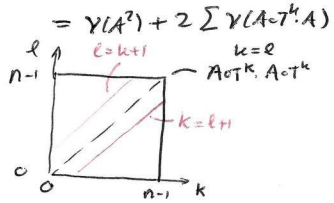 = γ(A²) + 2 Σ γ(A∘Tᵏ·A)
l
l=k+1
k=l
n-1
A∘Tᵏ, A∘Tᵏ
k=l+1
0
0
n-1
k